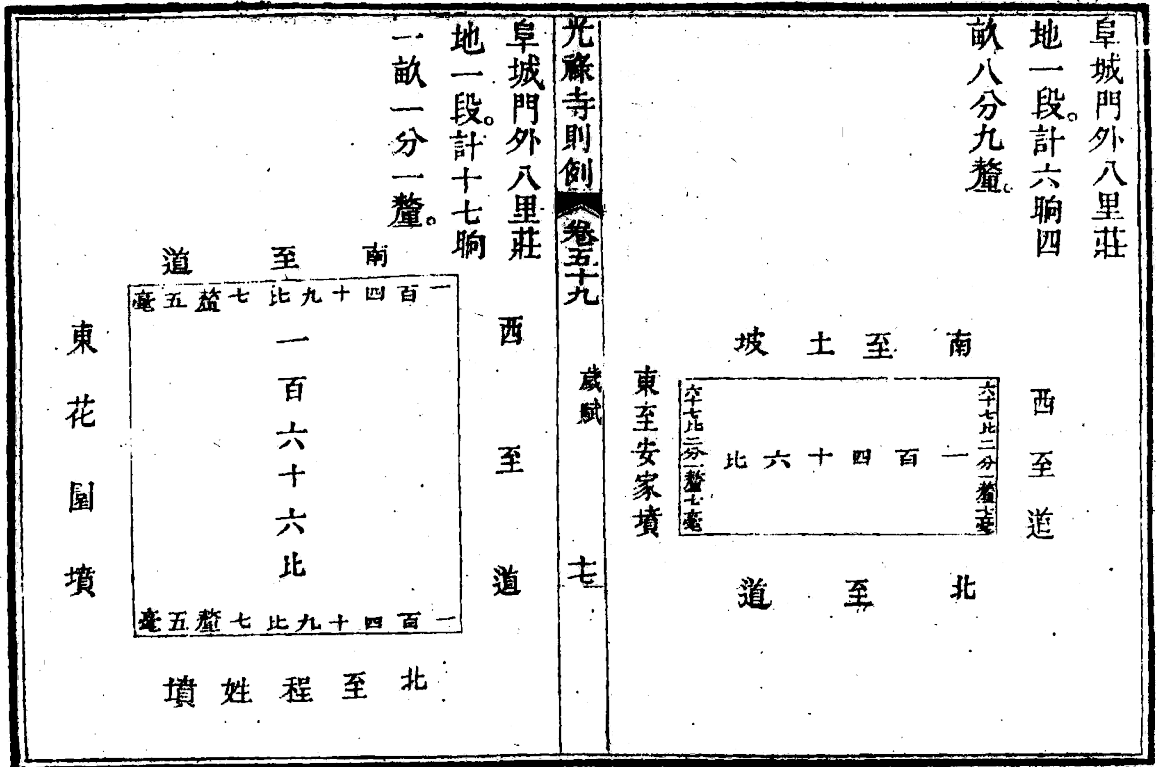 阜城門外八里莊
地一段。計六晌四
畝八分九釐。
南至土坡
西至道
六十七比二分一釐七毫
一百四十六比
六十七比二分一釐七毫
東至安家墳
北至道
光祿寺則例
卷五十九
歲賦
十七
阜城門外八里莊
地一段。計十七晌
一畝一分一釐。
南至道
西至道
一百四十九比七釐五毫
一百六十六比
一百四十九比七釐五毫
東花園墳
北至程姓墳